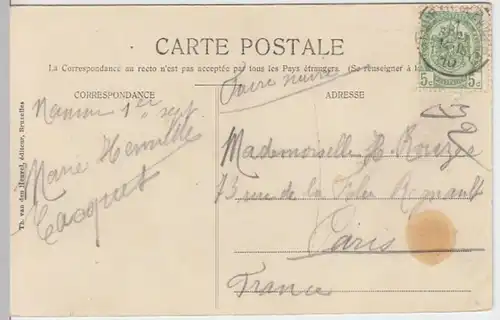 CARTE POSTALE
La Correspondance au recto n'est pas acceptée par tous les Pays étrangers. (Se renseigner à la
Faire suivre
CORRESPONDANCE
ADRESSE
Namur 1er sept
Marie Henriette
Cacquet
Mademoiselle H.
73 rue de la Regnault
Paris
France
Th. van den Heuvel, éditeur, Bruxelles
5c 5c